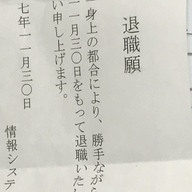 退職願
一身上の都合により、勝手ながら
一一月三〇日をもって退職いたし
い申し上げます。
七年一一月三〇日
情報システ